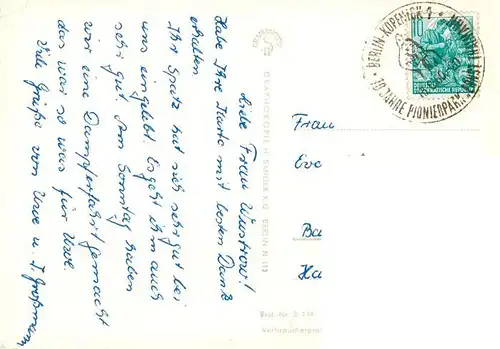 Liebe Frau Wüstrow!
Habe Ihre Karte mit besten Dank
erhalten
Ihr Spatz hat sich sehr gut bei
uns eingelebt. Es geht ihm auch
sehr gut. Am Sonntag haben
wir eine Dampferfahrt gemacht
das war so was für Uwe.
Viele Grüße von Uwe u. F. Großmann
GRAPHOKOPIE H. SANDER K.G. BERLIN N 113
Best.-Nr. B
Verbraucherpreis
BERLIN-KÖPENICK 1
10 JAHRE PIONIERPARK
10
DEUTSCHE
DEMOKRATISCHE REPUBLIK
Frau
Eve
Ba
Ha